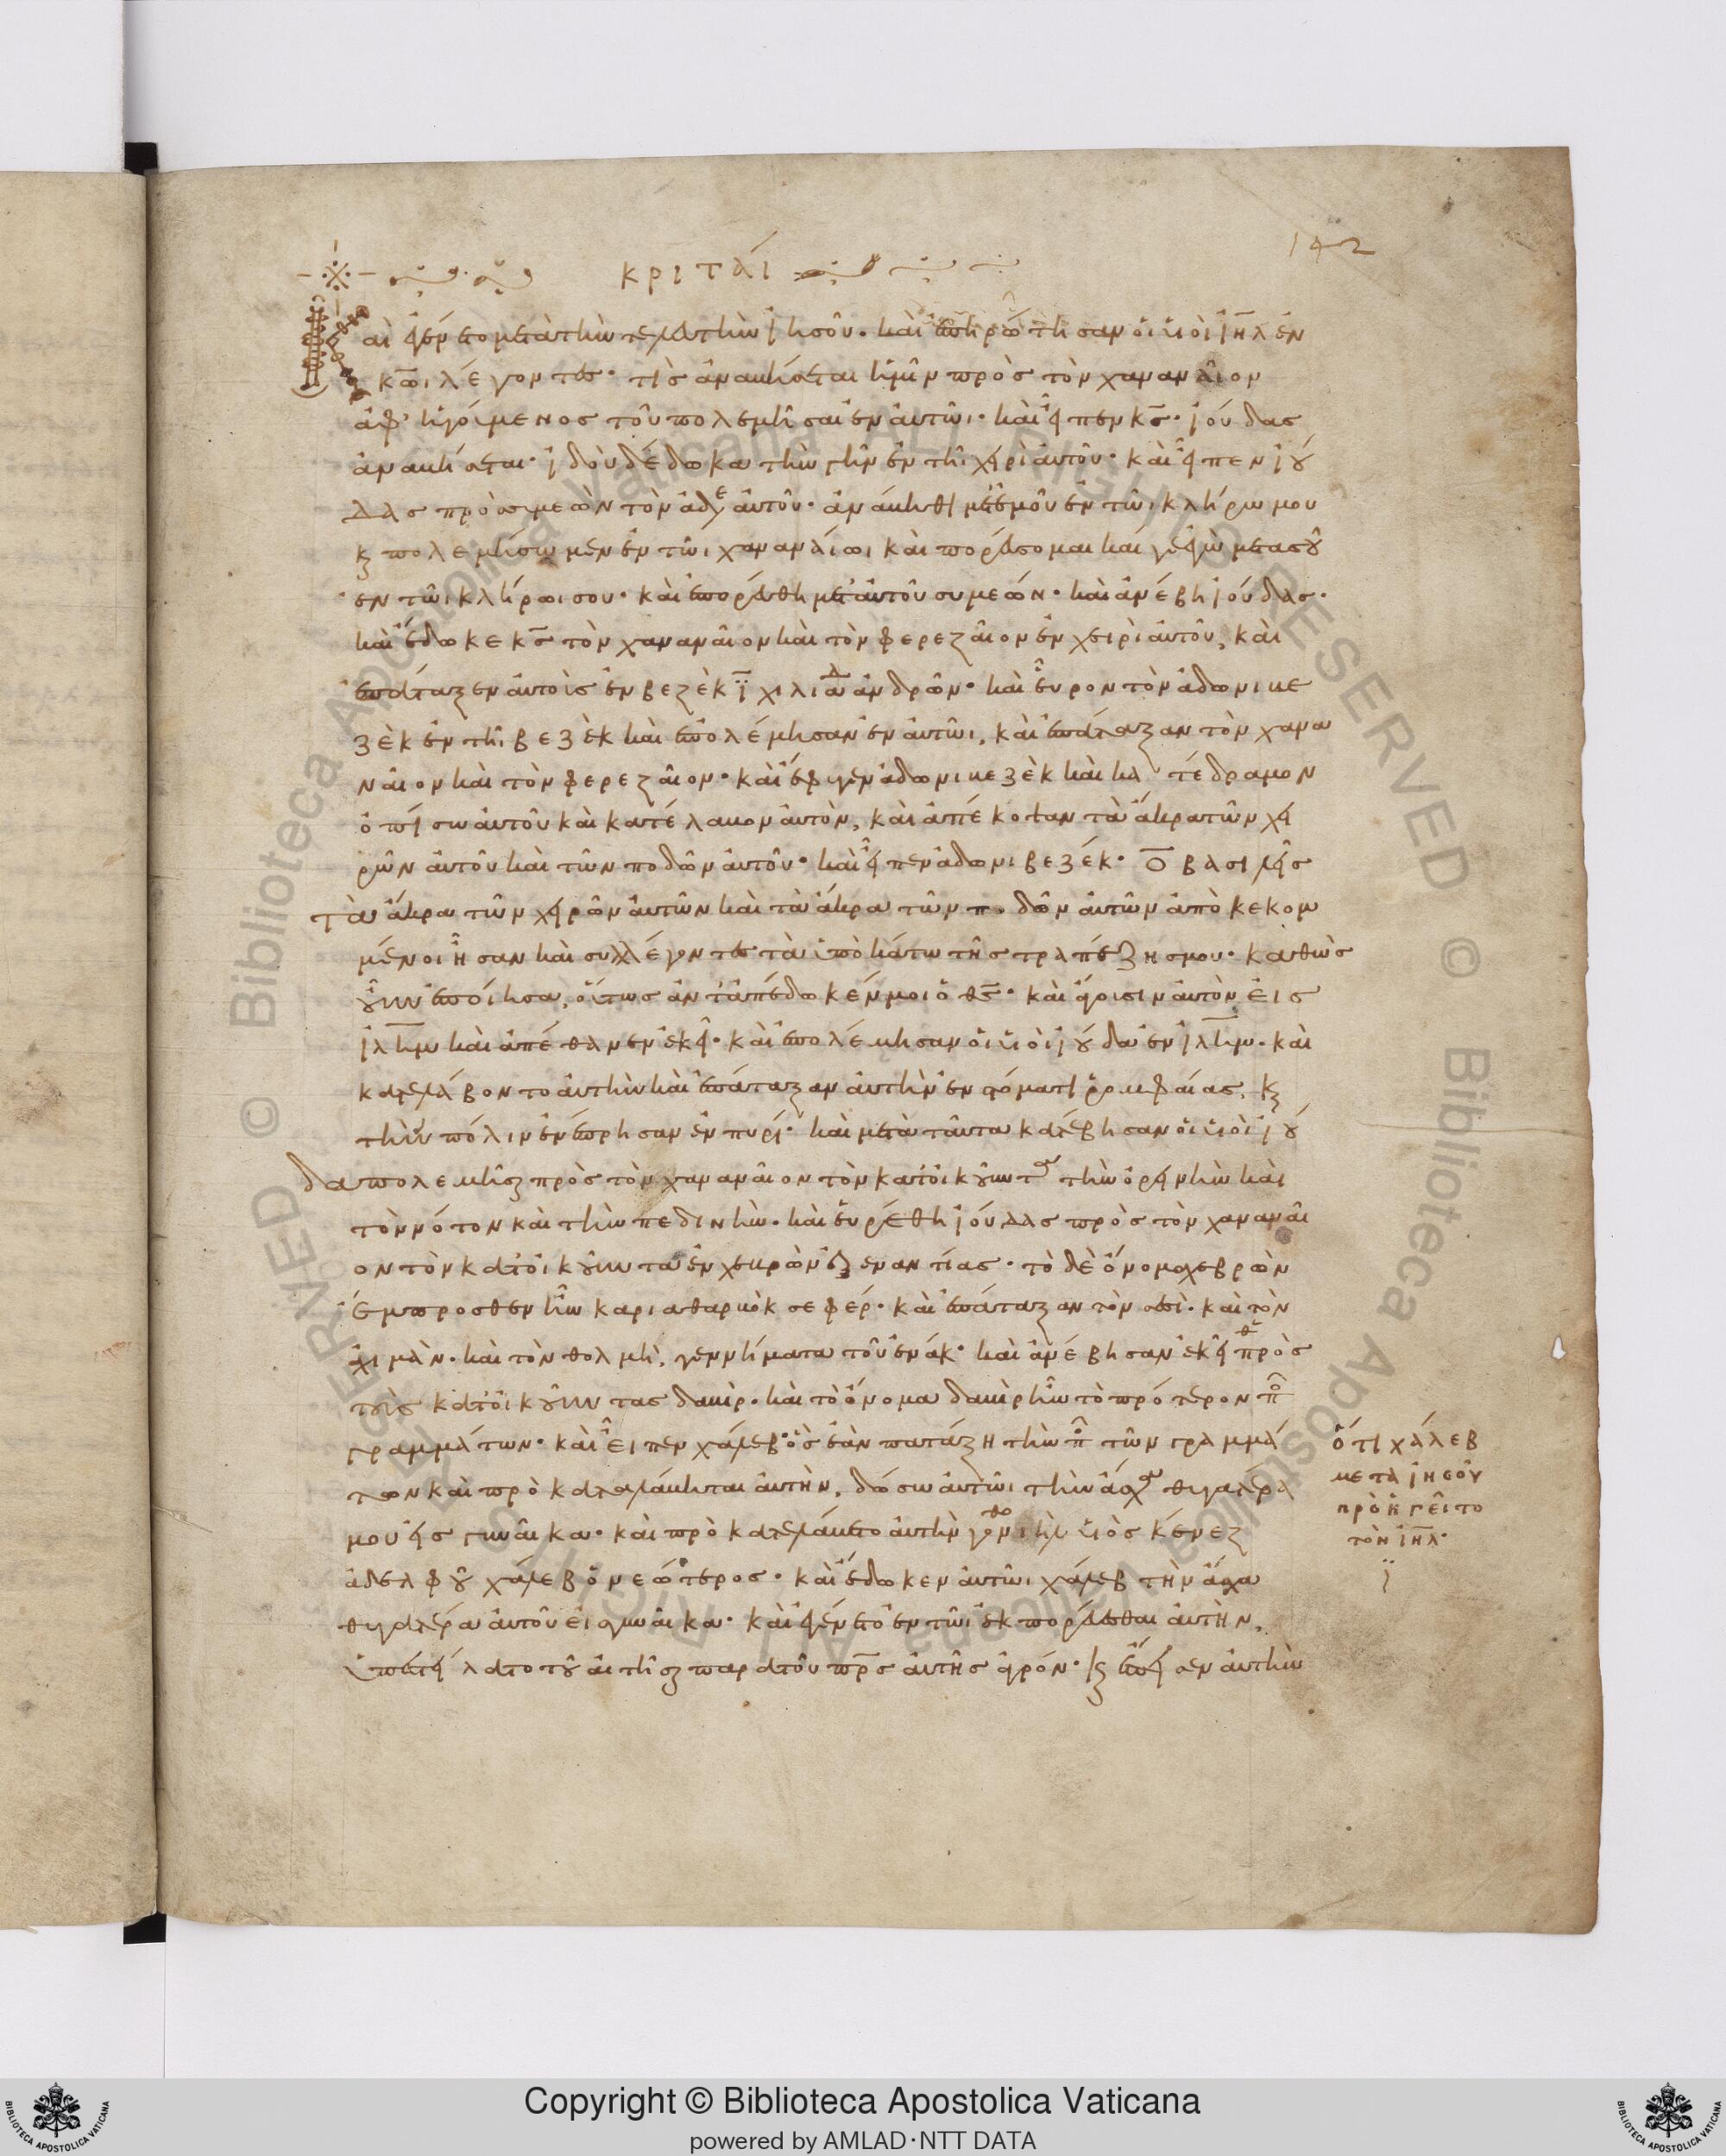 142
κριταί
Καὶ ἐγένετο μετὰ τὴν τελευτὴν ἰησοῦ· καὶ ἐπηρώτησαν οἱ υἱοὶ ιηλ ἐν
κωι λέγοντες· τίς ἀναβήσεται ἡμῖν πρὸς τὸν χαναναῖον
ἀφηγούμενος τοῦ πολεμῆσαι ἐν αὐτῶι· καὶ εἶπεν κς· ἰούδας
ἀναβήσεται· ἰδοὺ δέδωκα τὴν γῆν ἐν τῆ χειρὶ αὐτοῦ· καὶ εἶπεν ἰού
δας πρὸς συμεὼν τὸν ἀδε αὐτοῦ· ἀνάβηθι μετ ἐμοῦ ἐν τῶι κλήρω μου
κ πολεμήσωμεν ἐν τῶι χαναναίωι καὶ πορεύσομαι καί γε ἐγὼ μετα σοῦ
ἐν τῶι κλήρωι σου· καὶ ἐπορεύθη μετ αὐτοῦ συμεών· καὶ ἀνέβη ἰούδας·
καὶ ἔδωκε κς τὸν χαναναῖον καὶ τὸν φερεζαῖον ἐν χειρὶ αὐτοῦ, καὶ
ἐπάταξεν αὐτοὺς ἐν βεζὲκ ι χιλιαδ ἀνδρῶν· καὶ εὗρον τὸν ἀδωνιβε
ζὲκ ἐν τῆ βεζὲκ καὶ ἐπολέμησαν ἐν αὐτῶι, καὶ ἐπάταξαν τὸν χανα
ναῖον καὶ τὸν φερεζαῖον· καὶ ἔφυγεν ἀδωνιβεζὲκ καὶ κατέδραμον
ὀπίσω αὐτοῦ καὶ κατέλαβον αὐτὸν, καὶ ἀπέκοψαν τὰ ἄκρα τῶν χει
ρῶν αὐτοῦ καὶ τῶν ποδῶν αὐτοῦ· καὶ εἶπεν ἀδωνιβεζέκ· ο βασιλεῖς
τὰ ἄκρα τῶν χειρῶν αὐτῶν καὶ τὰ ἄκρα τῶν ποδῶν αὐτῶν ἀποκεκομ
μένοι ἦσαν καὶ συλλέγοντες τὰ ὑποκάτω τῆς τραπέζης μου· καθὼς
οὖν ἐποίησα, οὕτως ἀνταπέδωκέν μοι ὁ θς· καὶ αὐτὸν εἰς
ιλημ καὶ ἀπέθανεν ἐκεῖ· καὶ ἐπολέμησαν οἱ υἱοὶ ἰούδα ἐν ιλημ· καὶ
κατελάβοντο αὐτὴν καὶ ἐπάταξαν αὐτὴν ἐν στόματι ῥομφαίας, κ
τὴν πόλιν ἐνέπρησαν ἐν πυρί· καὶ μετὰ ταῦτα κατέβησαν οἱ υἱοὶ ἰού
δα πολεμῆσαι πρὸς τὸν χαναναῖον τὸν κατοικοῦντα τὴν ὀρεινὴν καὶ
τὸν νότον καὶ τὴν πεδινήν· καὶ εὑρέθη ἰούδας πρὸς τὸν χαναναῖ
ον τὸν κατοικοῦντα ἐν χεβρὼν ἐξεναντίας· τὸ δὲ ὄνομα χεβρὼν
ἔμπροσθεν ἦν καριαθαρβὸκ σεφέρ· καὶ ἐπάταξαν τὸν σεσὶ· καὶ τὸν
ἀχιμὰν· καὶ τὸν θολμὴ, γεννήματα τοῦ ἐνάκ· καὶ ἀνέβησαν ἐκεῖθε πρὸς
τοὺς κατοικοῦντας δαβὶρ· καὶ τὸ ὄνομα δαβὶρ ἦν τὸ πρότερον πο
γραμμάτων· καὶ εἶπεν χάλεβ· ὃς ἐὰν πατάξη τὴν πο τῶν γραμμά
των καὶ προκαταλάβηται αὐτὴν, δώσω αὐτῶι τὴν ἀσχα θυγατέρα
μου εἰς γυναῖκα· καὶ προκατελάβετο αὐτὴν γοθονιὴλ υἱὸς κένεζ
ἀδελφοῦ χάλεβ ὁ νεώτερος· καὶ ἔδωκεν αὐτῶι χάλεβ τὴν ἀσχα
θυγατέρα αὐτοῦ εἰς γυναῖκα· καὶ ἐγένετο ἐν τῶι ἐκπορεύεσθαι αὐτὴν,
αἰτῆσαι παρὰ τοῦ πρς αὐτῆς ἀγρόν· κ αὐτὴν
ὅτι χάλεβ
μετὰ ἰησοῦν
προηγεῖτο
τὸν ιηλ·
Copyright © Biblioteca Apostolica Vaticana
powered by AMLAD·NTT DATA